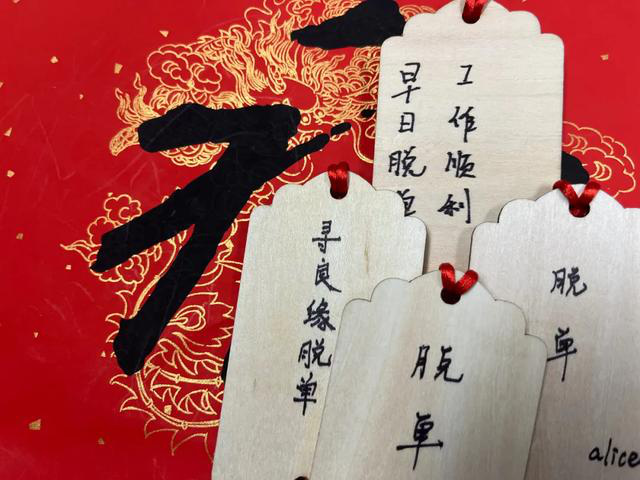 工作顺利
早日脱单
寻良缘脱单
脱单
脱单
alice